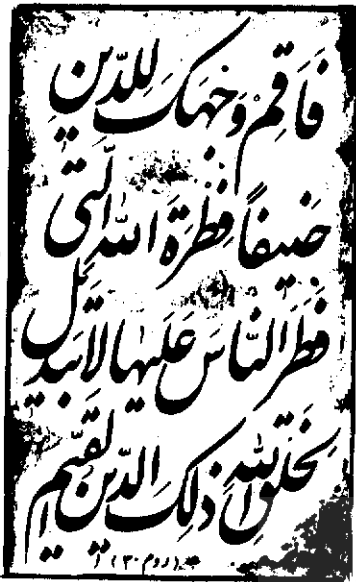 فَاَقِمْ وَجْهَكَ لِلدِّينِ
حَنِیفًا فِطْرَةَ اللهِ الَّتی
فَطَرَ النَّاسَ عَلَیْهَا لَا تَبْدِیلَ
لِخَلْقِ اللهِ ذٰلِکَ الدِّینُ الْقَیِّمُ
(روم ۳۰)